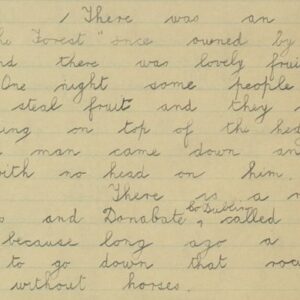 There was an
he Forest" once owned by
nd there was lovely frui
One night some people
steal fruit and they
ing on top of the hed
man came down an
with no head on him.
There is a
s and Donabate Co Dublin called
because long ago a
to go down that
without horses.